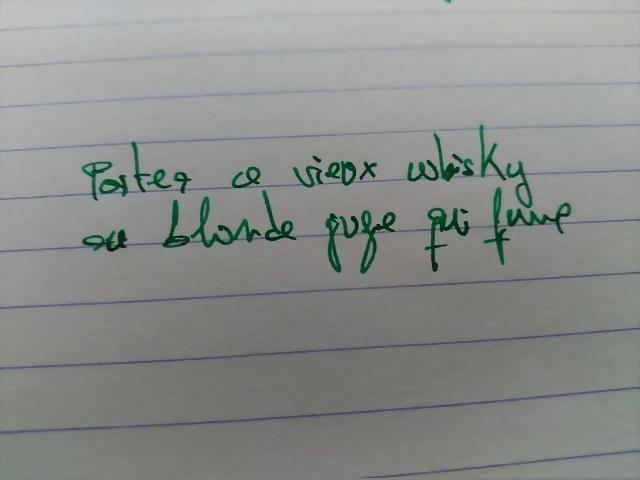 Porter ce vieux whisky
au blonde juge qui fume